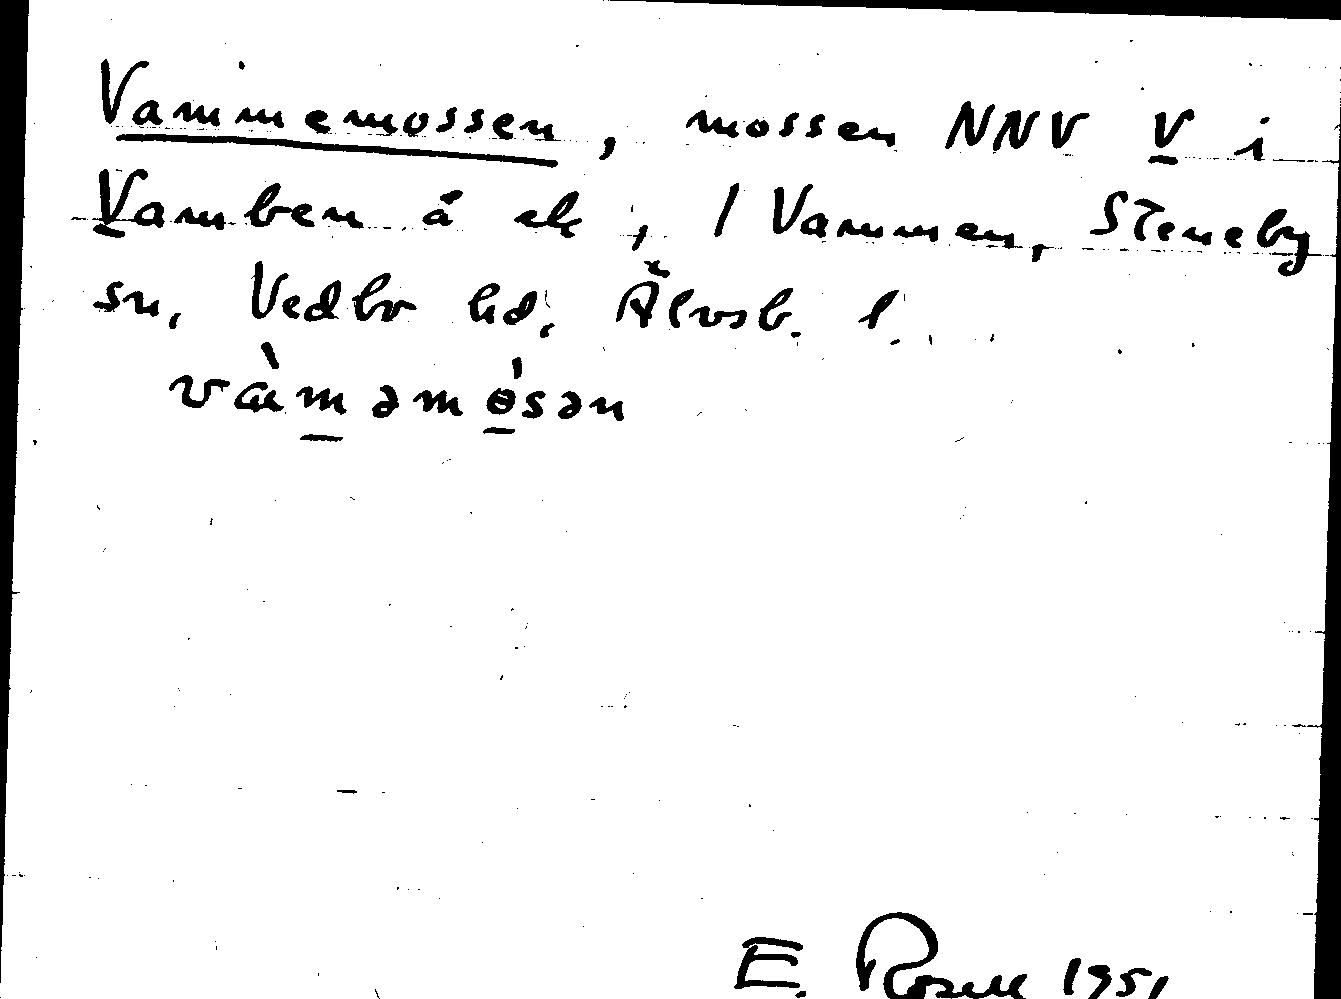 Vammemossen, mossen NNV V i
Vamben å ek, / Vammen, Steneby
sn, Vedbo hd, Älvsb. l.
vàməmɵ́sən
E. Rosell 1951